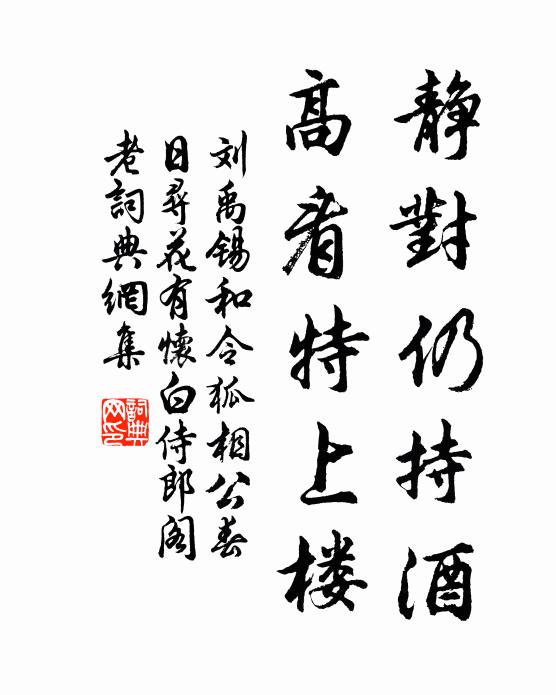 静對仍持酒
高看特上楼
刘禹锡和令狐相公春
日尋花有懷白侍郎阁
老詞典網集
詞典
网印